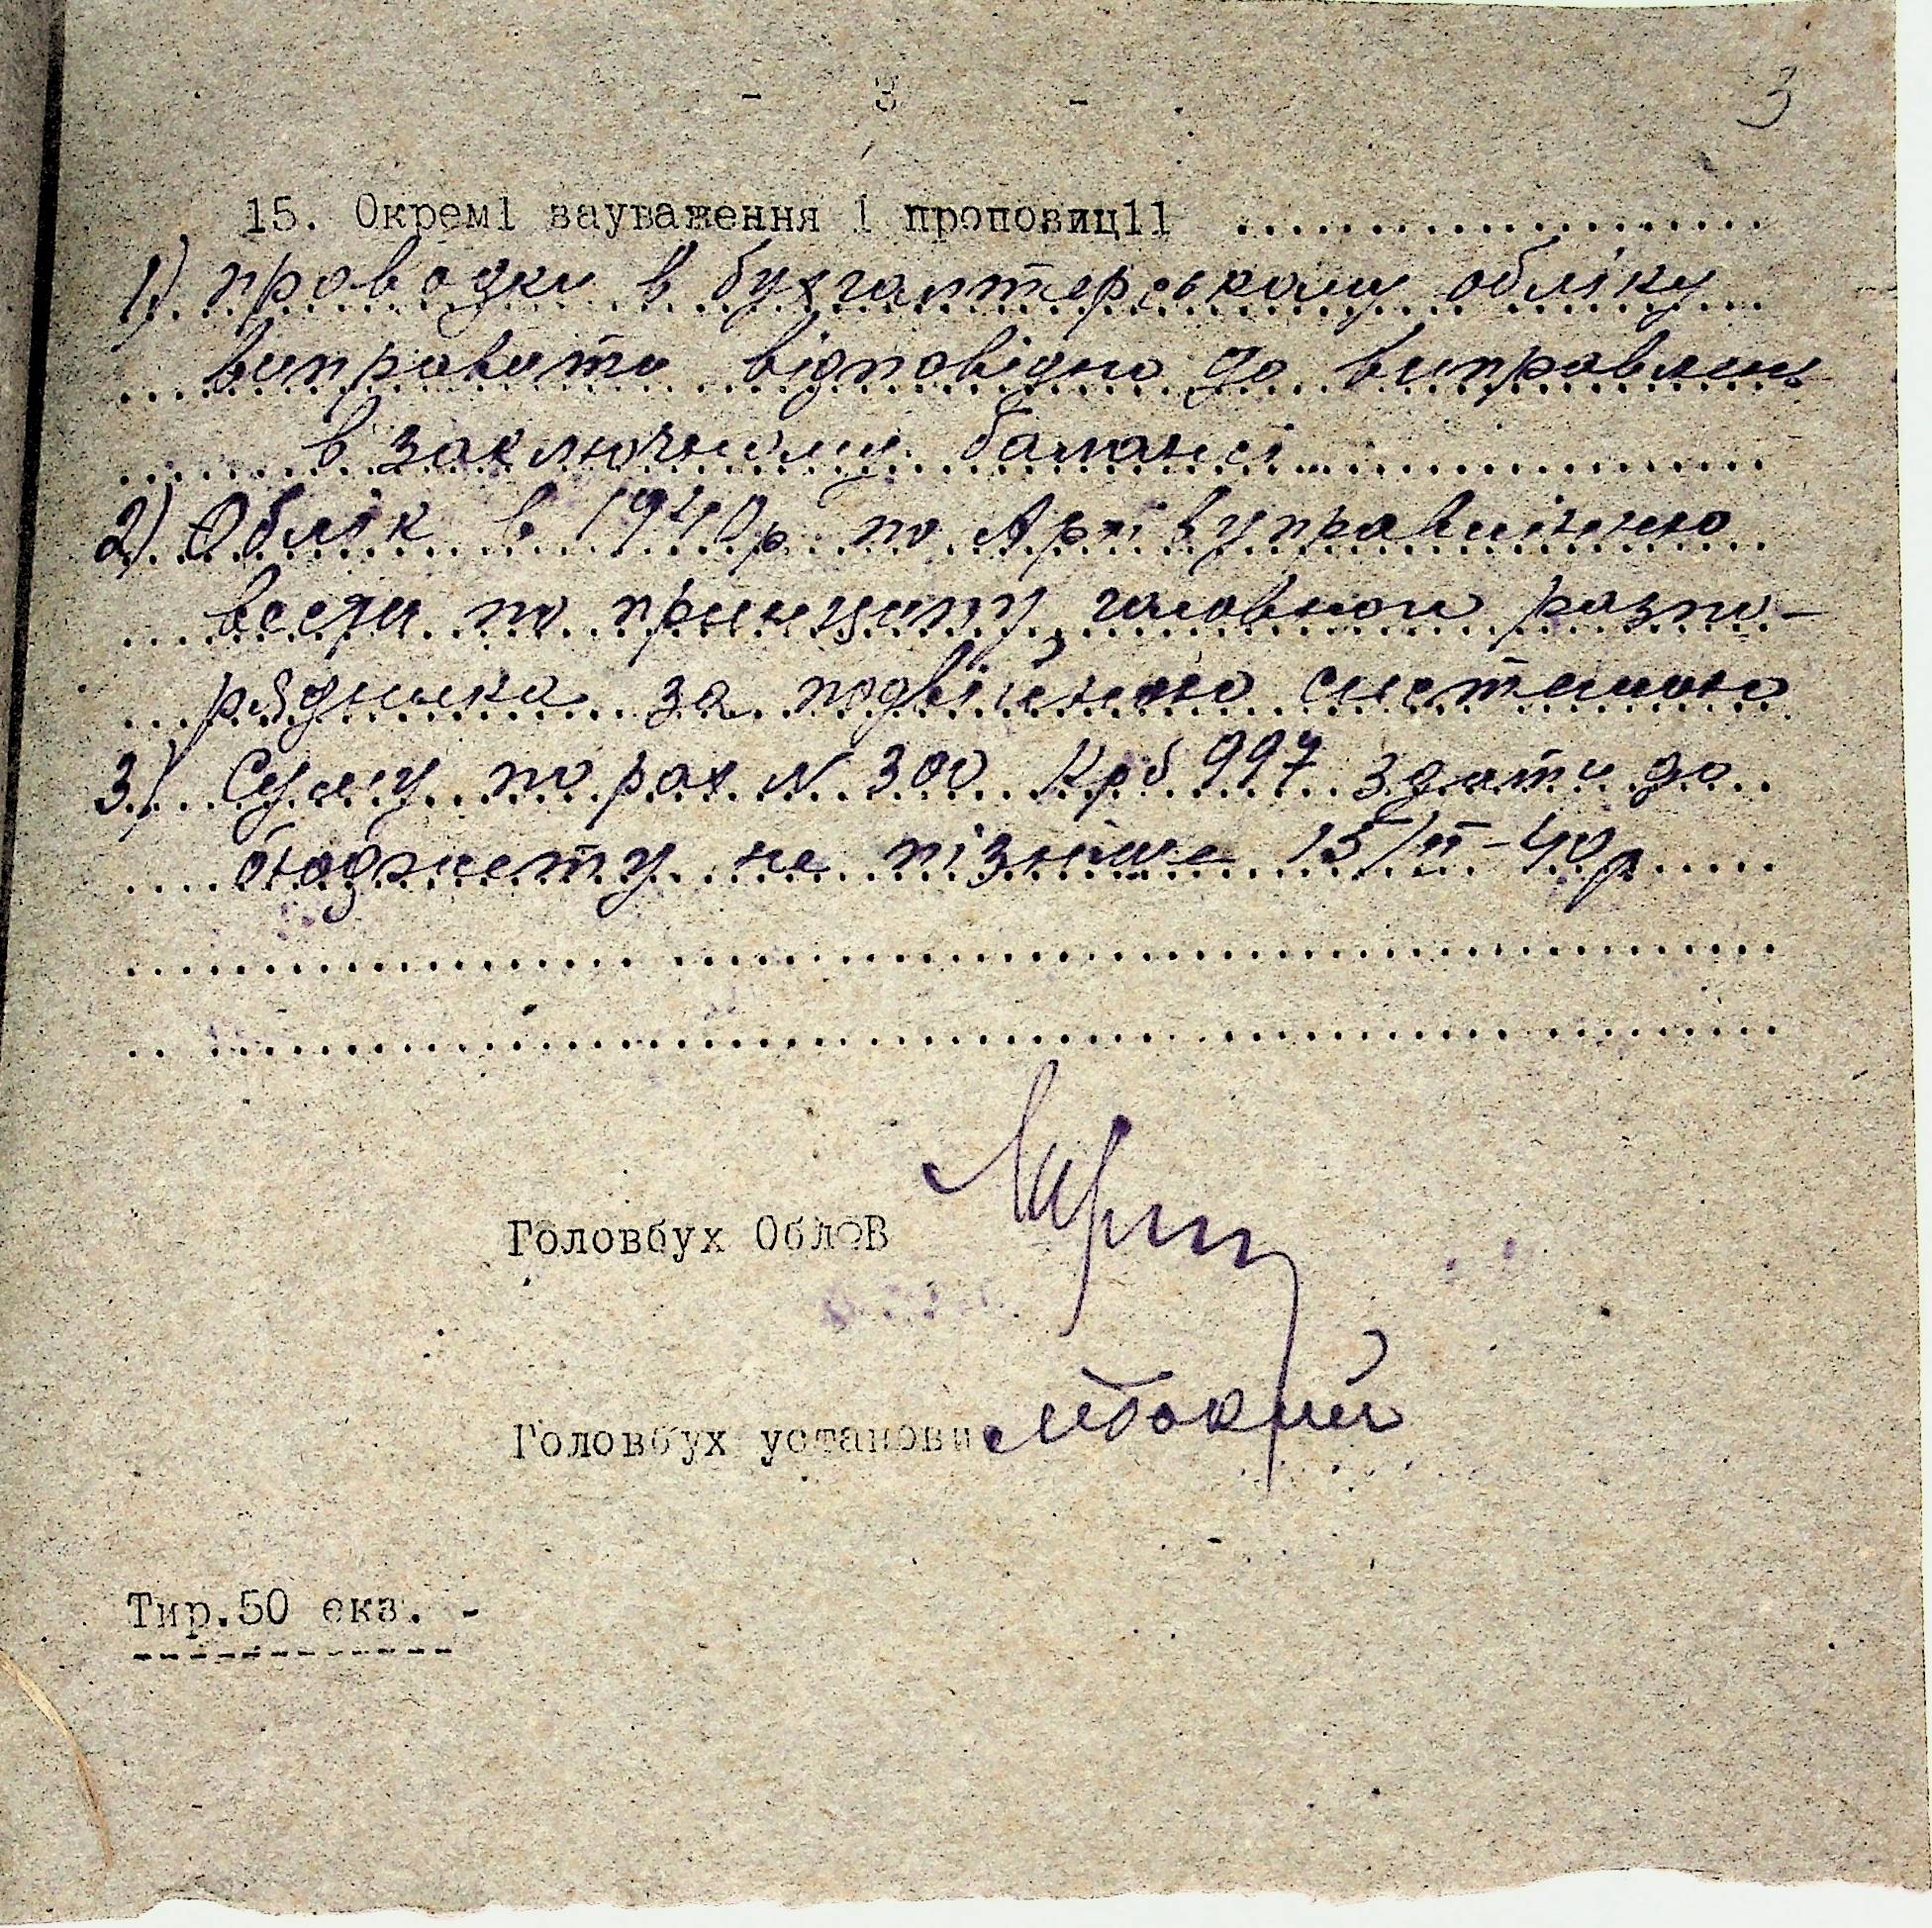 - 3 -
3
15. Окремі зауваження і пропозиції ....................
1) проводки в бухгалтерському обліку
виправити відповідно до виправлень
в заключному балансі
2) Облік в 1940р по Архівуправлінню
вести по принципу головного розпо-
рядника за подвійною системою
3) Суму по рах N 300 Крб 997 здати до
бюджету не пізніше 15/II-40р
Головбух ОблОВ
Головбух установи
Тир.50 екз. -